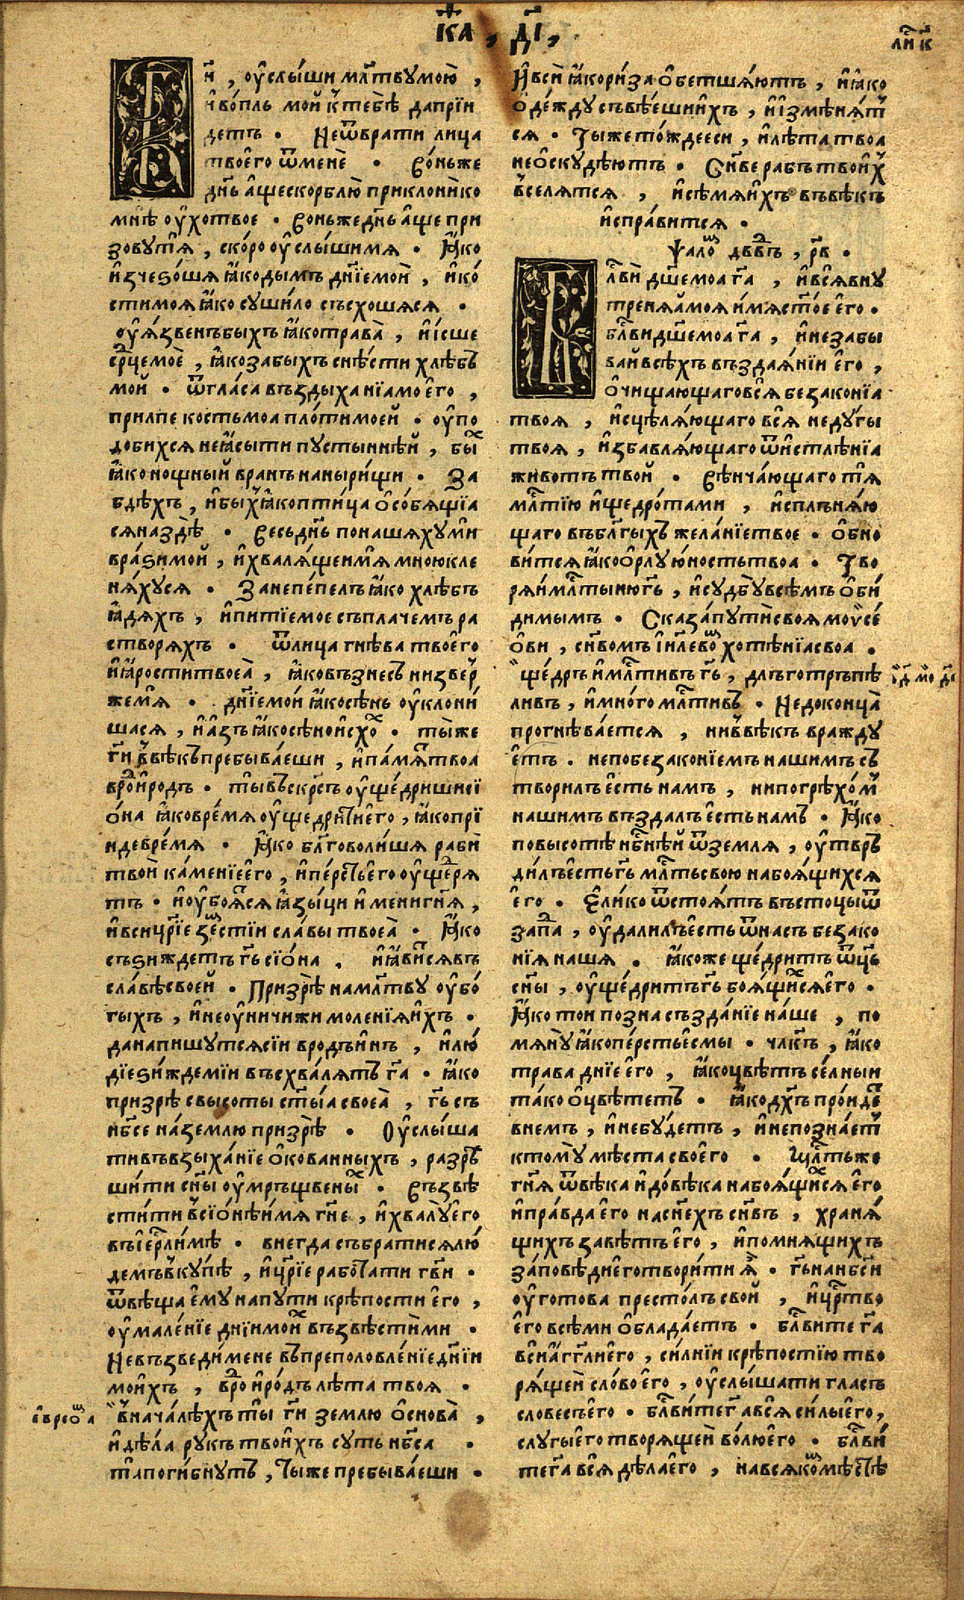 к҃а , д҃і ,
ли к
и҆ , ѹ҆слыши мл҃твꙋ мою̀ ,
и҆ во́пль мой к̾ тебѣ̀ да прїи
детъ . Не ѿврати лица
твоего̀ ѿ менѐ . Во́ньже
дн҃ь а҆ще скорблю̀ приклони̾ ко
мнѣ̀ ѹ҆́хо твое . Во ньже дн҃ь а҆ще при
зовꙋ̀ тѧ̀ , ско́ро ѹ҆слы́ши мѧ . Ꙗ҆́ко
и҆зчезо́шѧ ꙗ҆́ко дымъ дн҃їе мои̾ , и҆ ко́
сти моѧ ꙗ҆́ко сꙋши́ло съсхо́шѧсѧ .
ѹ҆ѧ́звенъ бы́хъ ꙗ҆́ко трава̀ , и҆ і҆́сше
ср҃це моѐ , ꙗ҆́ко забы́хъ снѣ́сти хлѣ́бъ
мой . ѿ гла́са въздыха нїа моего̀ ,
прилпе кость моа пло́ти моей . ѹ҆по
доби́хсѧ неꙗ҆́сыти пꙋсты́ннѣй , бы́х
ꙗ҆́ко нощный вранъ на ныри́щи . За
бдѣ́хъ , и҆ бы́х ꙗ҆́ко пти́ца ѻ҆собѧ́щїа
сѧ на здѣ̀ . Весь дн҃ь поношахꙋ ми
врази̾ мой , и҆ хвалѧ́щеи мѧ мною̀ кле
нѧ́хꙋсѧ . Зане пе́пелъ ꙗ҆́ко хлѣ́бъ
ꙗ҆дѧ́хъ , и҆ питїе мое съ пла́чемъ ра
створѧ́хъ . ѿ лица гнѣ́ва твоего̀
и҆ ꙗ҆́рости твоеѧ̀ , ꙗ҆́ко възнесъ низвер̾
же мѧ̀ . дн҃їе мои̾ ꙗ҆́ко сѣ́нь ѹ҆клони́
шасѧ , и҆ а҆́зъ ꙗ҆́ко сѣ́но и҆схо . ты́ же
гн҃и въ вѣ́къ пребыва́еши , и҆ па́мѧть твоа
въ ро́ и҆ родъ . ты̀ въскр҃съ ѹ҆ще́дриши сї
ѻ́на ꙗ҆́ко вре́мѧ ѹ҆ще́дрити его̀ , ꙗ҆́ко прї
иде вре́мѧ . Ꙗ҆́ко бл҃говоли́шѧ раби̾
твои̾ ка́менїе его̀ , и҆ пе́рсть его̀ ѹ҆ще́дрѧ
тъ . и҆ ѹ҆боѧ́сѧ ꙗ҆зы́ци и҆́мени гн҃ѧ ,
и҆ вси ц҃рїе зе́мстїи сла́вы твоеа̀ . Ꙗ҆́ко
съзи́ждетъ гь҃ сїо́на . и҆ ꙗ҆ви́сѧ въ
сла́вѣ своей . Призрѣ̀ на мл҃твꙋ ѹ҆бо́
гыхъ , и҆ не ѹ҆ничижи моленїѧ и҆́хъ .
да напи́шꙋтсѧ сїи в родъ и҆́нъ , и҆ лю́
дїе зи́ждемїи въсхва́лѧтъ гa҃ . ꙗ҆́ко
призрѣ̀ с высоты ст҃ы́а своеа̀ , гь҃ съ
нб҃се на́ землю призрѣ̀ . Ѹ҆слыша
ти въздыха́нїе ѻ҆кованныхъ , разрѣ
ши́ти сн҃ы ѹ҆мръщвены́х . Възвѣ
стити въ сїо́нѣ и҆́мѧ гн҃е , и҆ хвалꙋ̀ его̀
въ і҆ер҃ли́мѣ . внегда събрати сѧ лю́
демъ въ кꙋ́пѣ , и҆ ц҃рїе рабо́тати гв҃и .
ѿвѣща ємꙋ на пꙋти крѣ́пости его̀ ,
ѹ҆мале́нїе дн҃їи мои́х възвѣсти̾ ми .
Не възведи мене въ преполовле́нїе дн҃їи
мои́хъ , в ро́ и҆ ро́дъ лѣ́та твоѧ .
в̾нача́лѣхъ ты̀ гн҃и землю ѻ҆снова̀ ,
и҆ дѣ́ла рꙋкъ твои́хъ сꙋть нб҃са .
та̀ поги́бнꙋтъ , ты́же пребыва́еши .
є҆врео а
и҆ вси ꙗ҆́ко ри́за ѻ҆бетша́ютъ , и҆ ꙗ҆́ко
ѻ҆де́ждꙋ съвїе́ши и҆́хъ , и҆ і҆змѣнѧ́т
сѧ . Ты́ же то́ждe еси , и҆ лѣ́та твоа
не ѻ҆скꙋдѣ́ютъ . Сн҃ве рабъ твои́х
вселѧтсѧ , и҆ сѣ́мѧ и҆́хъ въ вѣ́къ
исправитсѧ .
Ѱало дв҃въ , р҃в .
лв҃и дш҃е моа гa҃ , и҆ всѧ̀ внꙋ
тренѧѧ моѧ и҆́мѧ ст҃ое его̀ .
бл҃ви дш҃е моа гa҃ , и҆ не забы
вай всѣ́хъ въздаѧ́нїи его̀ ,
ѻ҆чищающаго всѧ̀ безаконїа
твоѧ , и҆сцѣлѧ́ющаго всѧ̀ недꙋ́гы
твоѧ , и҆збавлѧ́ющаго ѿ и҆стлѣ́нїа
животъ твой . вѣнча́ющаго тѧ̀
мл҃тїю и҆ щедро́тами , и҆сплънѧ́ю
щаго въ бл҃гы́хъ жела́нїе твое . ѻ҆бно
ви́тсѧ ꙗ҆́ко ѻ҆рлꙋ ю҆ность твоа . Тво
рѧ́и мл҃тыню гь҃ , и҆ сꙋдбꙋ̀ всѣ́мъ ѻ҆би́
димымъ . Сказа̀ пꙋти̾ своѧ моѵсе́
ѻви , сн҃вомъ і҆и҃левом хотѣ́нїа своа .
ще́дръ и҆ мл҃тивъ гь҃ , дльготръпѣ
ливъ , и҆ много мл҃тивъ . Не до конца̀
прогнѣ́ваетсѧ , ни въ вѣ́къ враждꙋ
етъ . не по безаконїемъ нашимъ съ
творилъ е҆сть намъ , ни по грѣхо́м
нашимъ въздалъ е҆сть намъ . Ꙗ҆́ко
по высотѣ нб҃снѣй ѿ землѧ , ѹ҆твръ
ди́лъ есть гь҃ мл҃ть свою на боѧ́щихсѧ
его̀ . Е҆лико ѿстоѧ́тъ въстоцы ѿ
запа , ѹ҆дали́лъ есть ѿ насъ безако
нїѧ нашѧ . ꙗ҆́коже ще́дритъ ѿц҃ь
сн҃ы , ѹ҆ще́дритъ гь҃ боѧ́щисѧ его̀ .
Ꙗ҆́ко той позна създа́нїе на́ше , по
мѧнꙋ̀ ꙗ҆́ко пе́рсть есмы . чл҃къ , ꙗ҆́ко
трава дн҃їе его̀ , ꙗ҆́ко цвѣ́тъ се́лныи
та́ко ѻ҆цвѣ́тетъ . ꙗ҆́ко дх҃ъ про́йде
в немъ , и҆ не бꙋ́детъ , и҆ не позна́ет
к томꙋ̀ мѣста своего . Мл҃ть же
гн҃ѧ ѿ вѣ́ка и҆ до вѣ́ка на боѧ́щисѧ его̀
и҆ пра́вда его̀ на сн҃ехъ сн҃въ , хранѧ́
щихъ завѣ́тъ его̀ , и҆ помнѧ́щихъ
за́повѣди его̀ творити ѧ . гь҃ на нб҃си
ѹ҆готова престо́лъ свой , и҆ цр҃тво
его̀ всѣ́ми ѻ҆блада́етъ . бл҃вите гa҃
вси аг҃гли его̀ , си́лнїи крѣ́постїю тво
рѧ́щеи сло́во его̀ , ѹ҆слы́шати гласъ
словесъ его̀ . бл҃вите гa҃ всѧ си́лы его̀ ,
слꙋгы его̀ творѧ́щеи во́лю его̀ . бл҃ви́
те гa҃ всѧ̀ дѣ́ла его̀ , на всѧком мѣ́стѣ